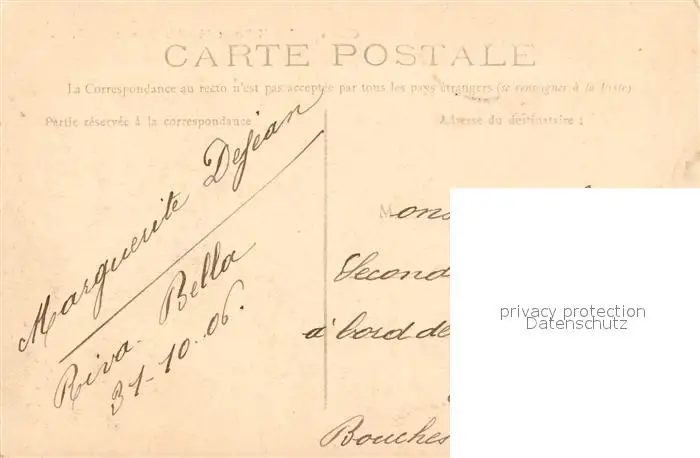 CARTE POSTALE
La Correspondance au recto n'est pas acceptée par tous les pays étrangers (se renseigner à la Poste)
Partie réservée à la correspondance
Adresse du destinataire :
Marguerite Dejean
Riva-Bella
31-10-06.
Mons
Second
à bord de
Bouches
privacy protection
Datenschutz